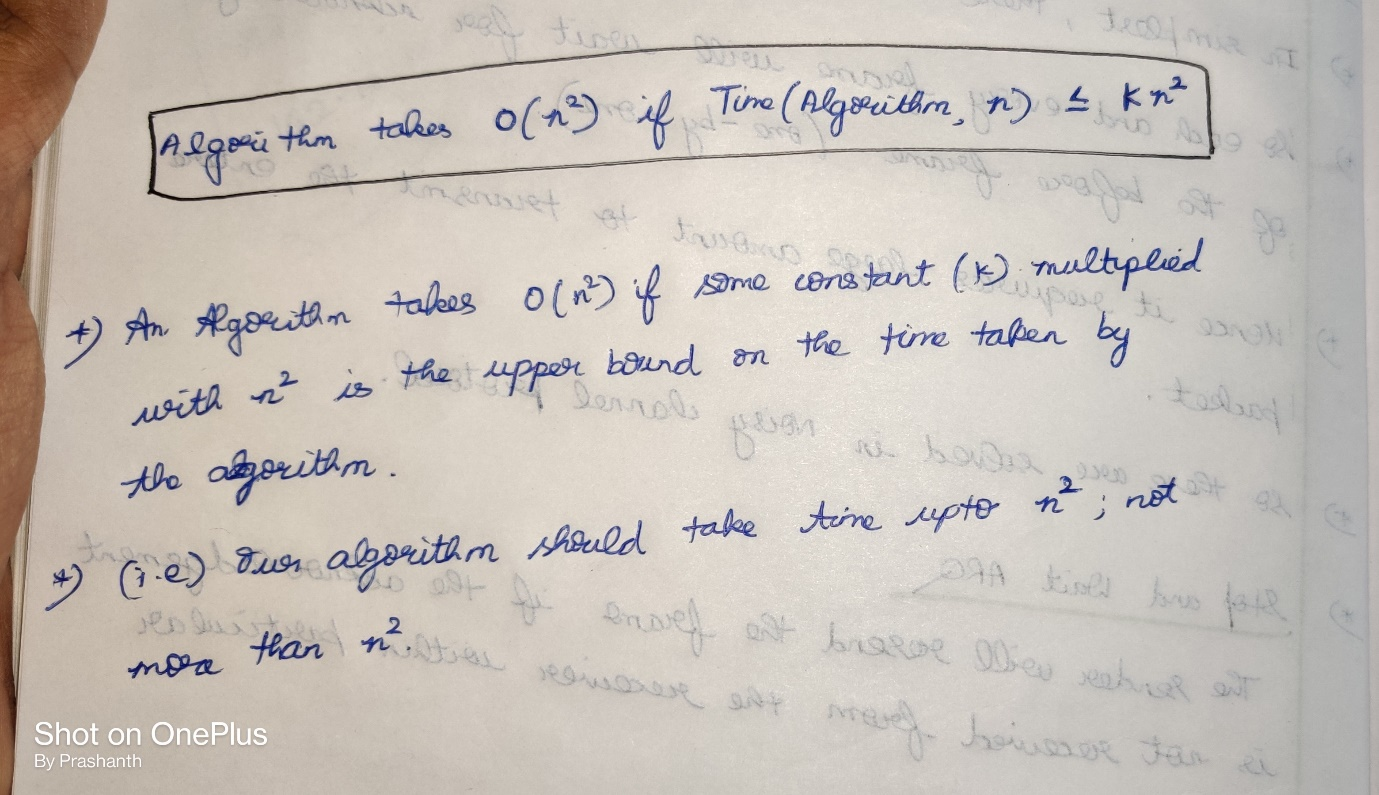 Algorithm takes O(n²) if Time(Algorithm, n) ≤ Kn²
*) An Algorithm takes O(n²) if some constant (K) multiplied
with n² is the upper bound on the time taken by
the algorithm.
*) (i.e) Our algorithm should take time upto n²; not
more than n².
Shot on OnePlus
By Prashanth